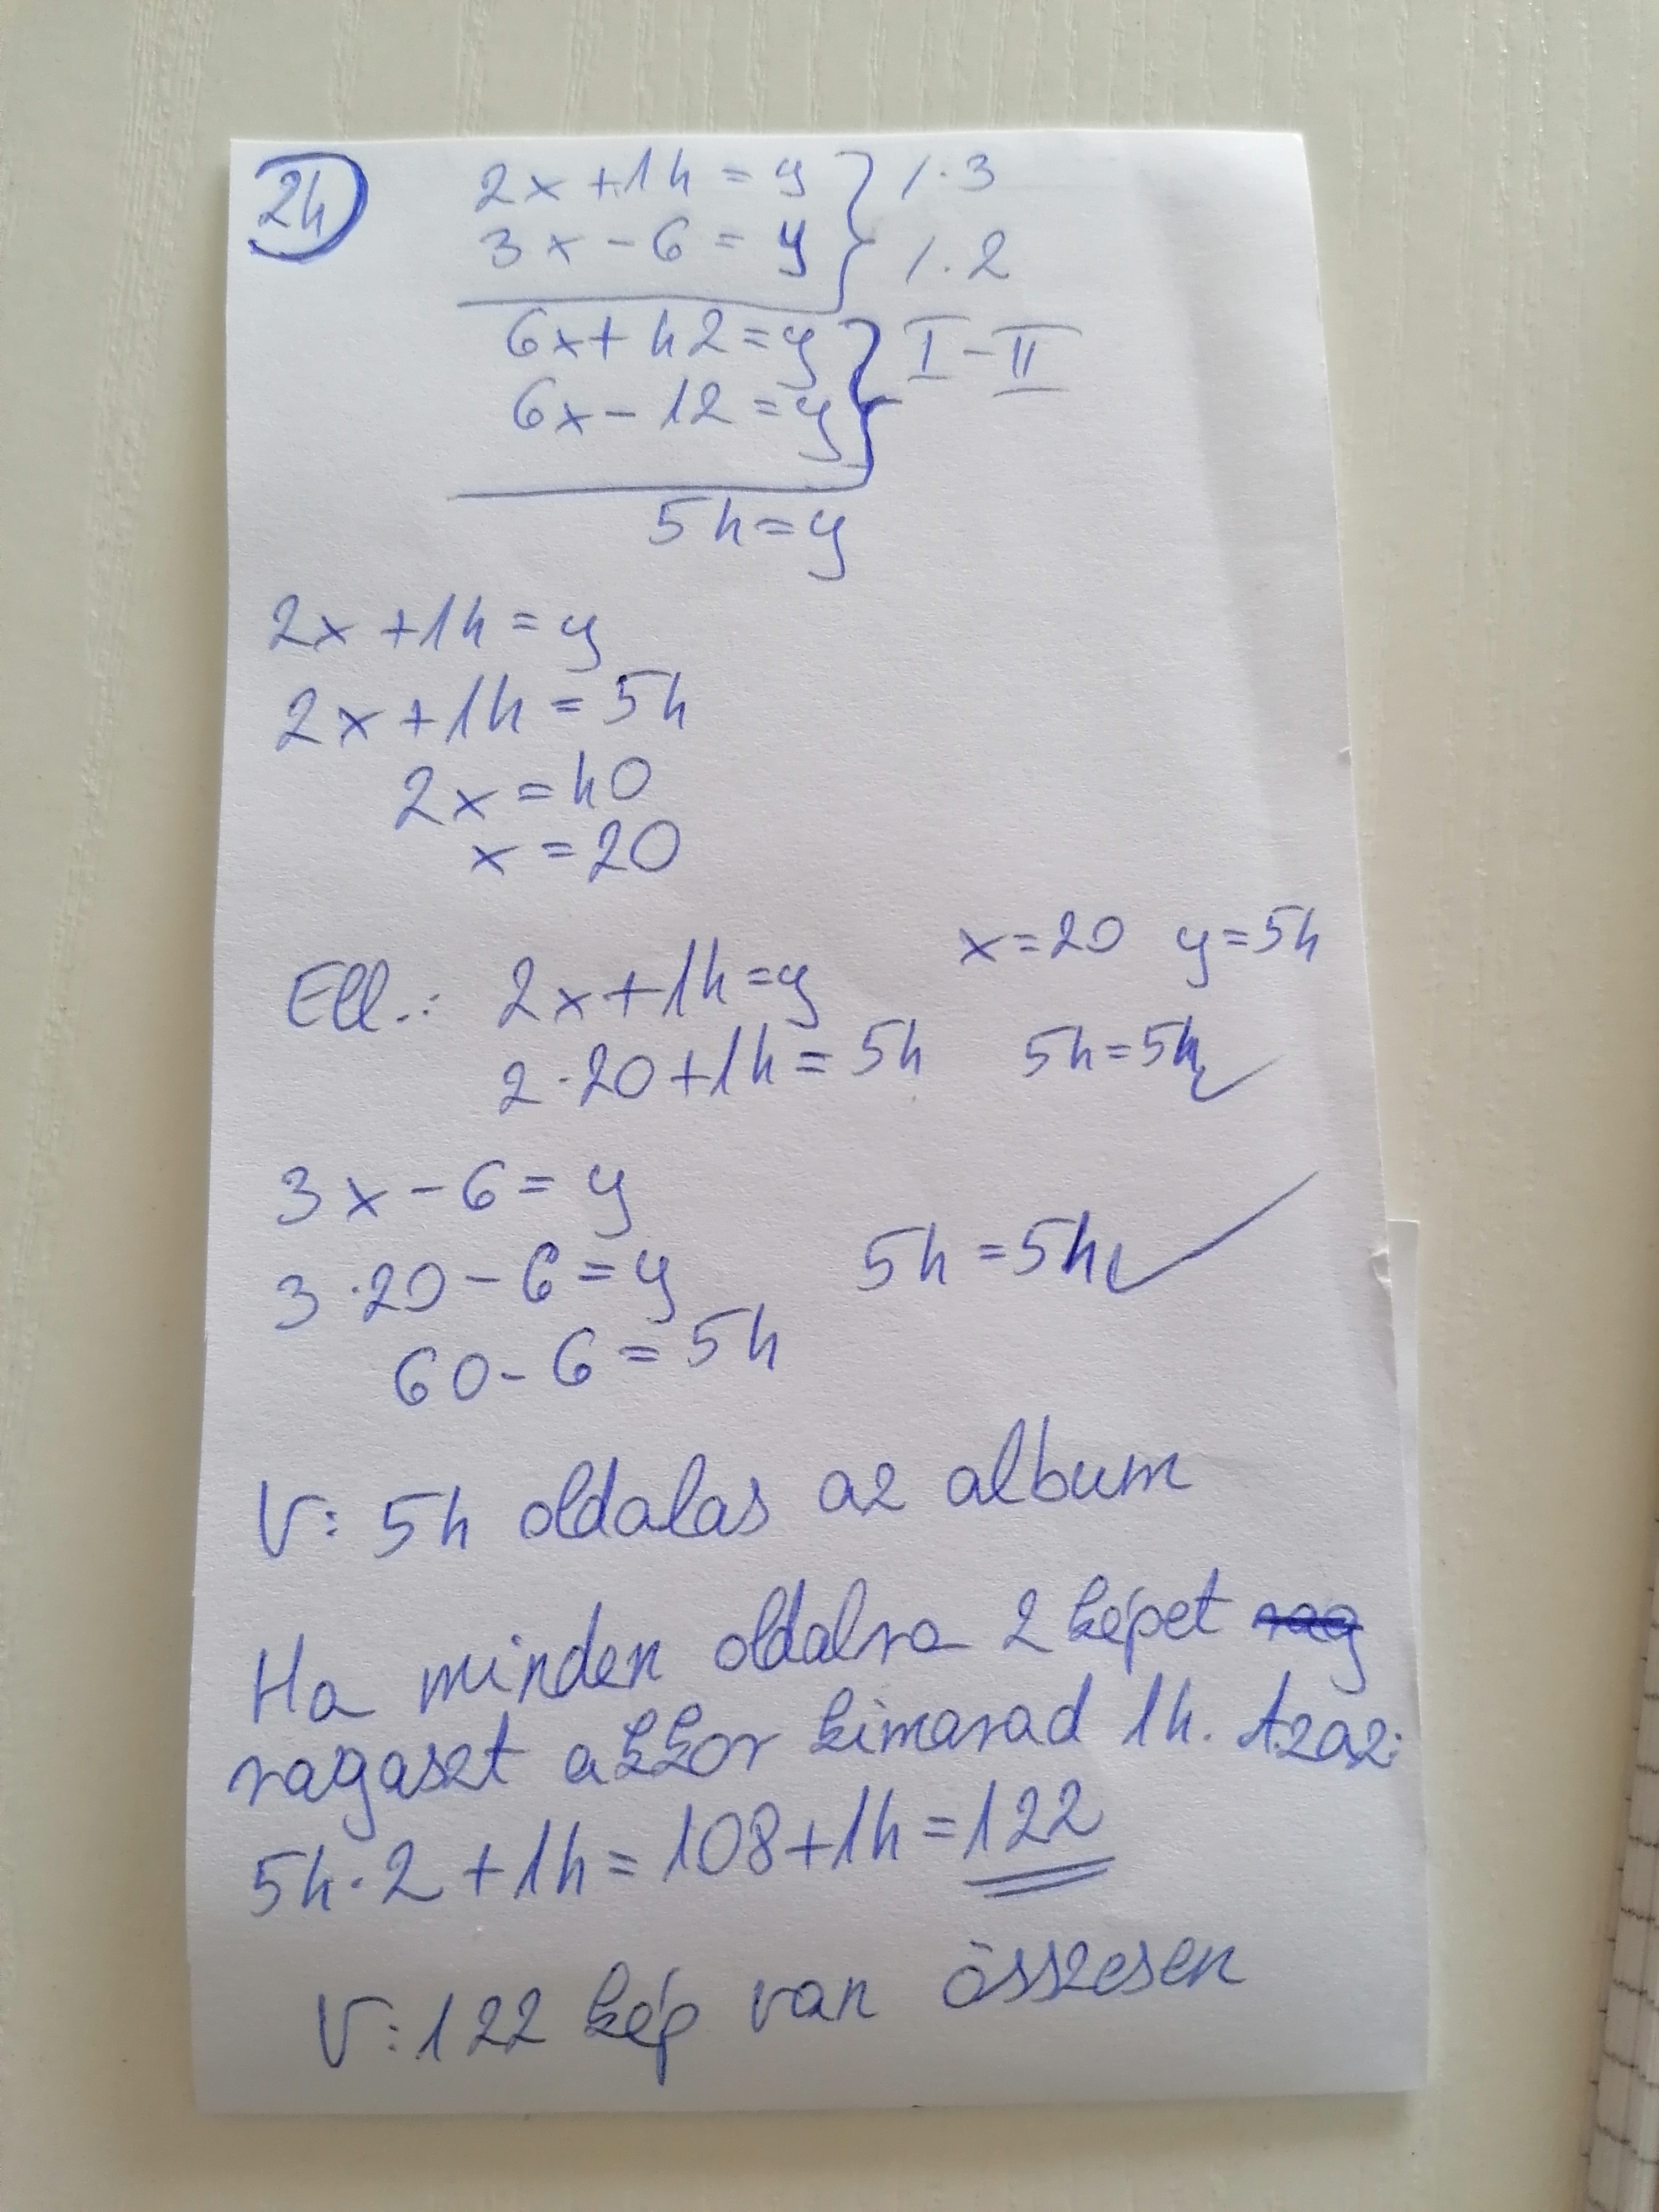 24
2x+14=y } /·3
3x-6=y /·2
6x+42=y } I-II
6x-12=y
54=y
2x+14=y
2x+14=54
2x=40
x=20
x=20 y=54
Ell.: 2x+14=y
2·20+14=54 54=54 ✓
3x-6=y
3·20-6=y 54=54 ✓
60-6=54
V: 54 oldalas az album
Ha minden oldalra 2 képet rag
ragaszt akkor kimarad 14. Azaz:
54·2+14=108+14=122
V:122 kép van összesen